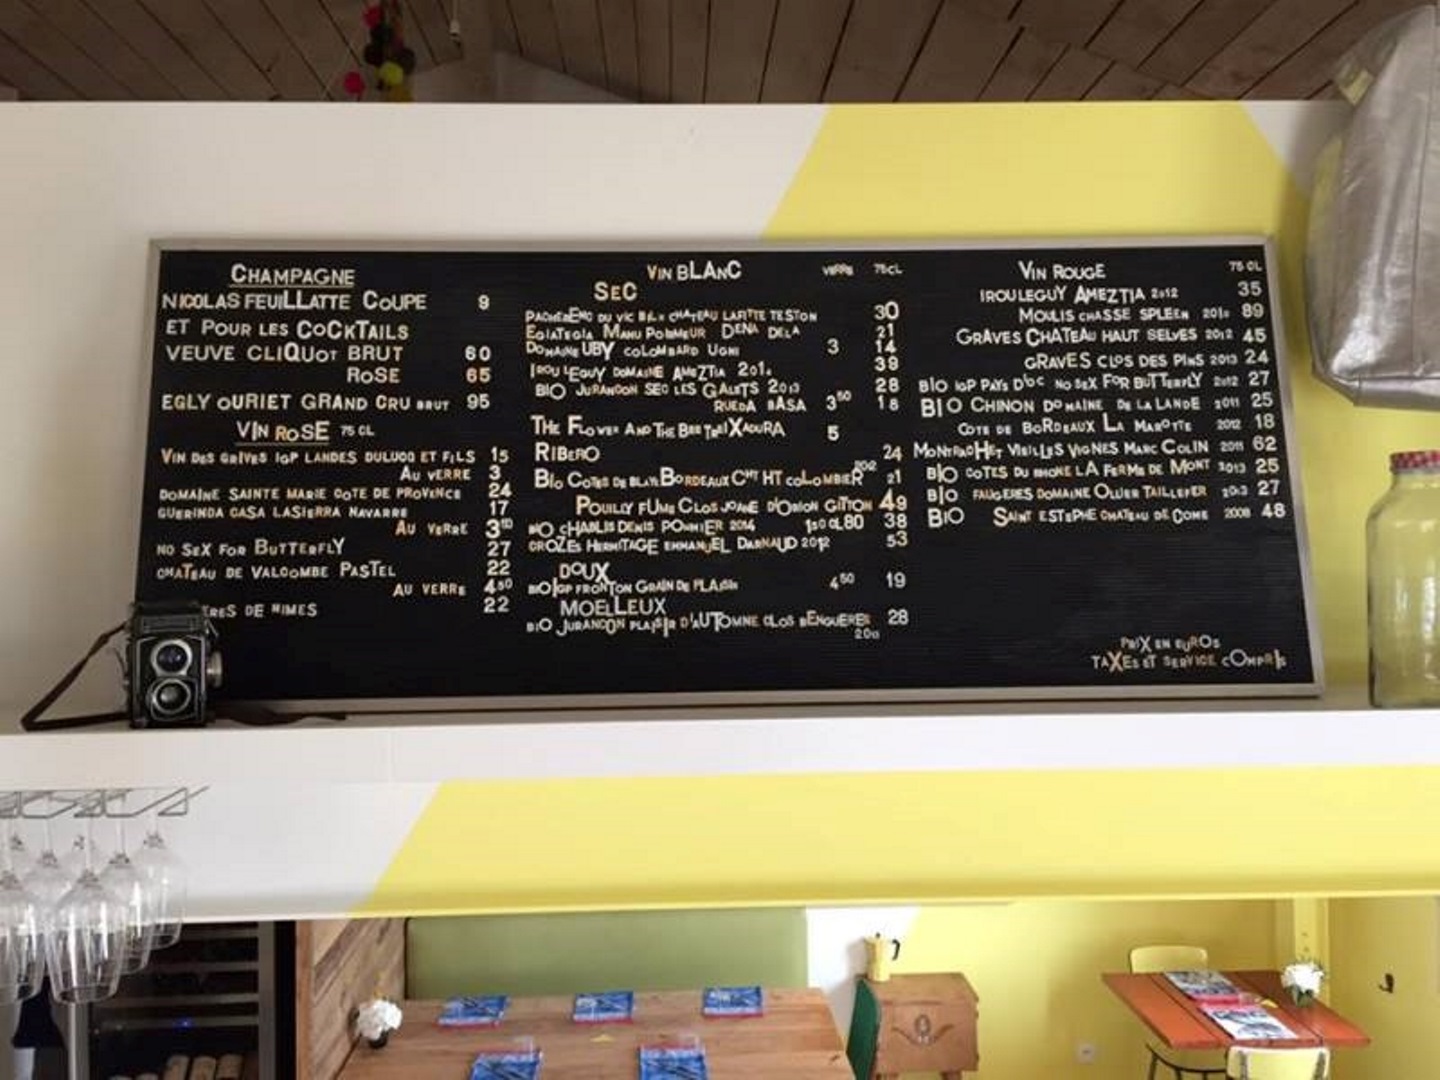 CHAMPAGNE
NICOLAS FEUILLATTE COUPE 9
ET POUR LES COCKTAILS
VEUVE CLIQUOT BRUT 60
ROSE 65
EGLY OURIET GRAND CRU BRUT 95
VIN ROSE 75 CL
VIN DES GRIVES IGP LANDES DULUCQ ET FILS 15
AU VERRE 3
DOMAINE SAINTE MARIE COTE DE PROVENCE 24
GUERINDA CASA LASIERRA NAVARRE 17
AU VERRE 3 50
NO SEX FOR BUTTERFLY 27
CHATEAU DE VALCOMBE PASTEL 22
AU VERRE 4 50
DE NIMES 22
VIN BLANC VERRE 75CL
SEC
PACHERENC DU VIC CHATEAU LAFITTE TESTON 30
EGIATEGIA MANU DENA DELA 21
DOMAINE UBY COLOMBARD UGNI 3 14
IROULEGUY DOMAINE AMEZTIA 39
BIO JURANCON SEC LES GALETS 2013 28
RUEDA BASA 3 50 18
THE FLOWER AND THE BEE TREIXADURA 5
RIBERO 24
BIO COTES DE BLAYE BORDEAUX CHT HT COLOMBIER 2012 21
POUILLY FUME CLOS JOANE D'ORION GITTON 49
BIO CHABLIS DENIS POMMIER 2014 80 38
CROZES HERMITAGE EMMANUEL DARNAUD 2012 53
DOUX
BIO IGP FRONTON GRAIN DE PLAISIR 4 50 19
MOELLEUX
BIO JURANCON PLAISIR D'AUTOMNE CLOS BENGUERES 28
2011
VIN ROUGE 75 CL
IROULEGUY AMEZTIA 2012 35
MOULIS CHASSE SPLEEN 89
GRAVES CHATEAU HAUT SELVES 2012 45
GRAVES CLOS DES PINS 2013 24
BIO IGP PAYS D'OC NO SEX FOR BUTTERFLY 2012 27
BIO CHINON DOMAINE DE LA LANDE 2011 25
COTE DE BORDEAUX LA MAROTTE 2012 18
MONTRACHET VIEILLES VIGNES MARC COLIN 2011 62
BIO COTES DU RHONE LA FERME DE MONT 2013 25
BIO FAUGERES DOMAINE OLLIER TAILLEFER 2013 27
BIO SAINT ESTEPHE CHATEAU DE COME 2008 48
PRIX EN EUROS
TAXES ET SERVICE COMPRIS